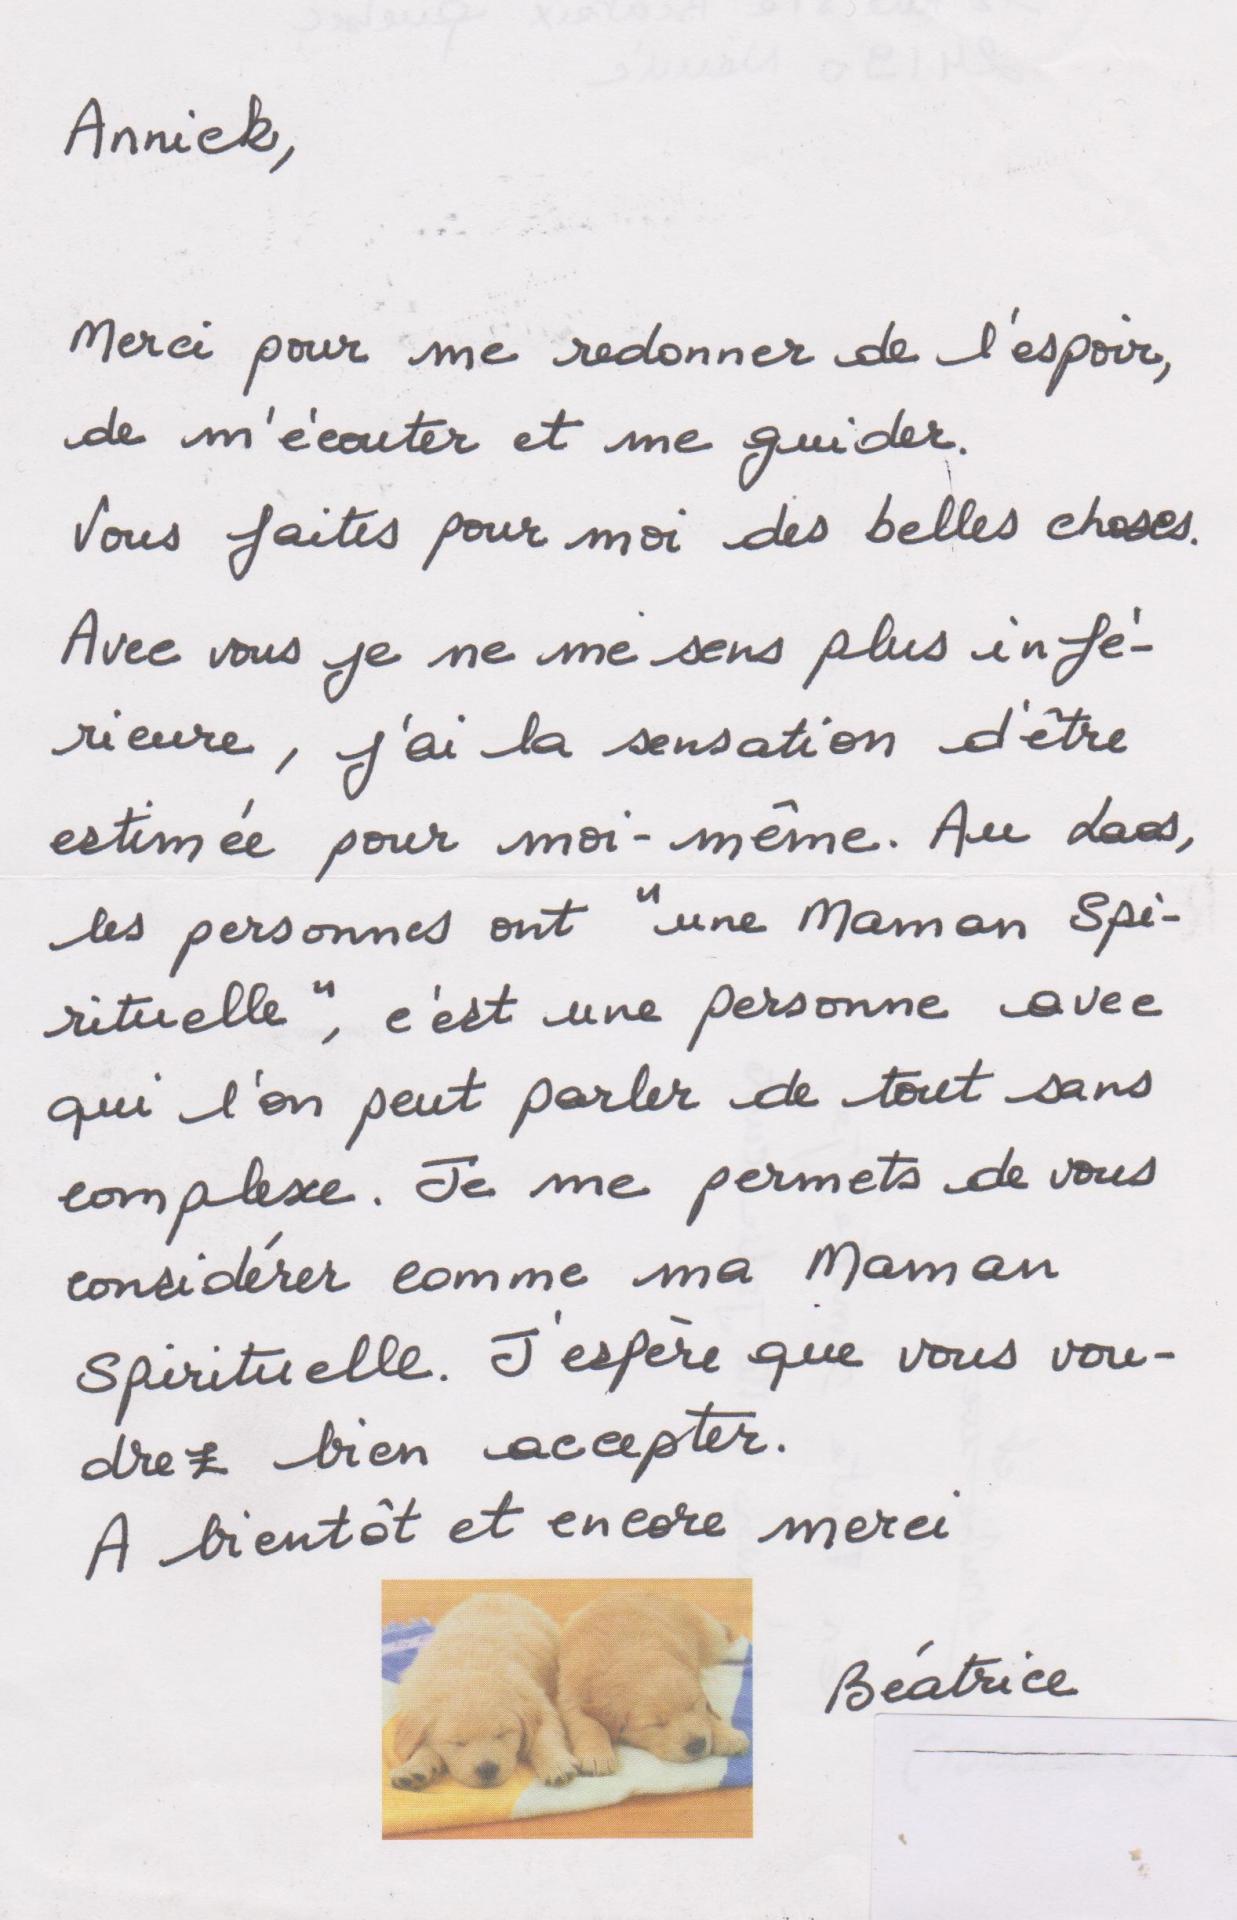 Annick,
Merci pour me redonner de l'espoir,
de m'écouter et me guider.
Vous faites pour moi des belles choses.
Avec vous je ne me sens plus infé-
rieure, j'ai la sensation d'être
estimée pour moi-même. Au Laos,
les personnes ont "une Maman Spi-
rituelle", c'est une personne avec
qui l'on peut parler de tout sans
complexe. Je me permets de vous
considérer comme ma Maman
Spirituelle. J'espère que vous vou-
drez bien accepter.
A bientôt et encore merci
Béatrice